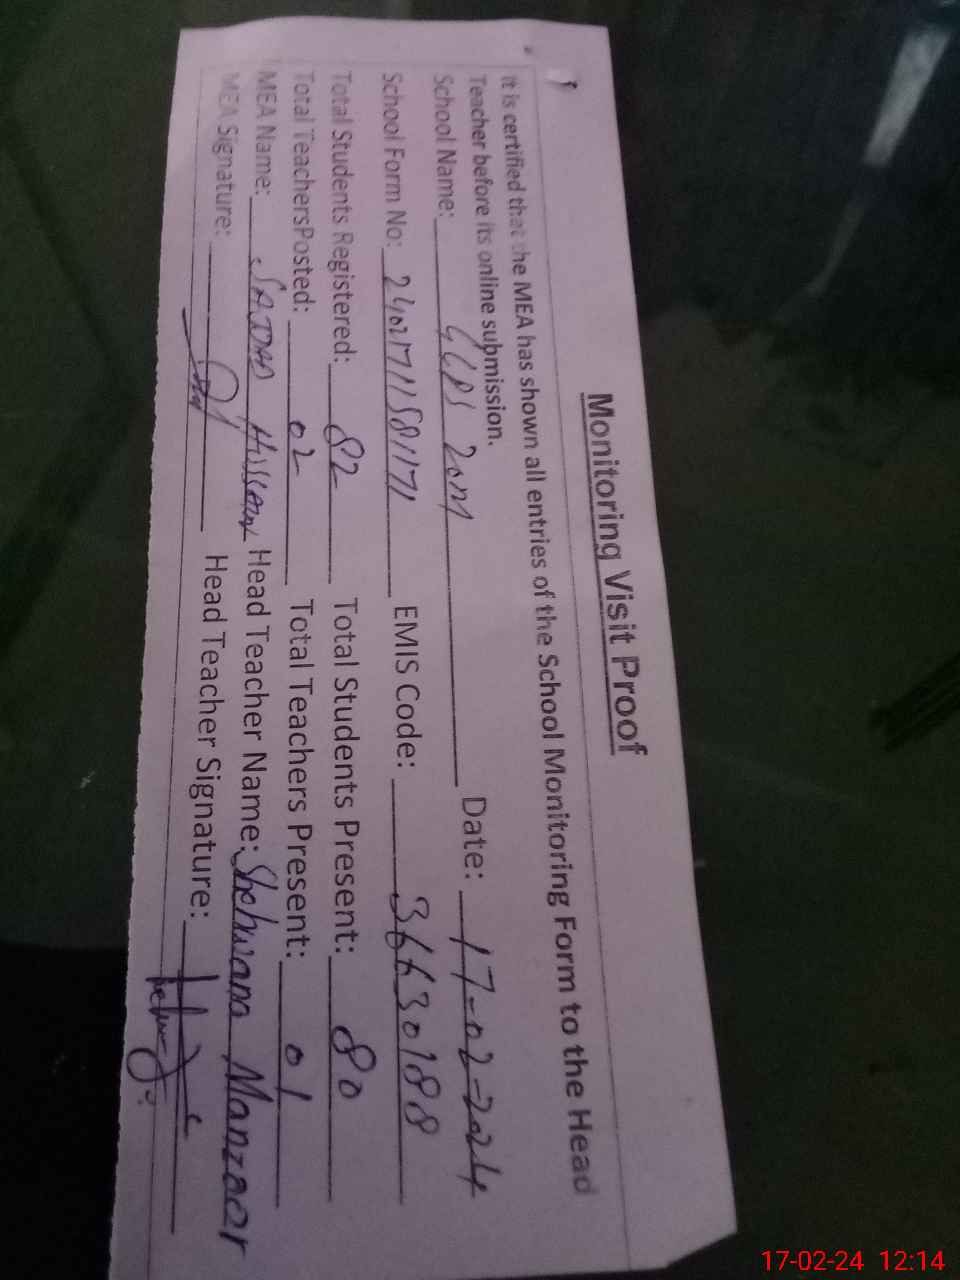 Monitoring Visit Proof
It is certified that the MEA has shown all entries of the School Monitoring Form to the Head
Teacher before its online submission.
School Name: Date: 17-02-2024
School Form No: EMIS Code: 36630188
Total Students Registered: 82 Total Students Present: 80
Total TeachersPosted: 02 Total Teachers Present: 01
MEA Name: Head Teacher Name: Manzoor
MEA Signature: Head Teacher Signature:
17-02-24 12:14